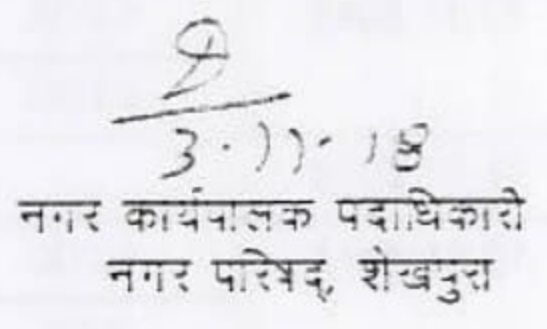 3.11.18
नगर कार्यपालक पदाधिकारी
नगर परिषद्, शेखपुरा